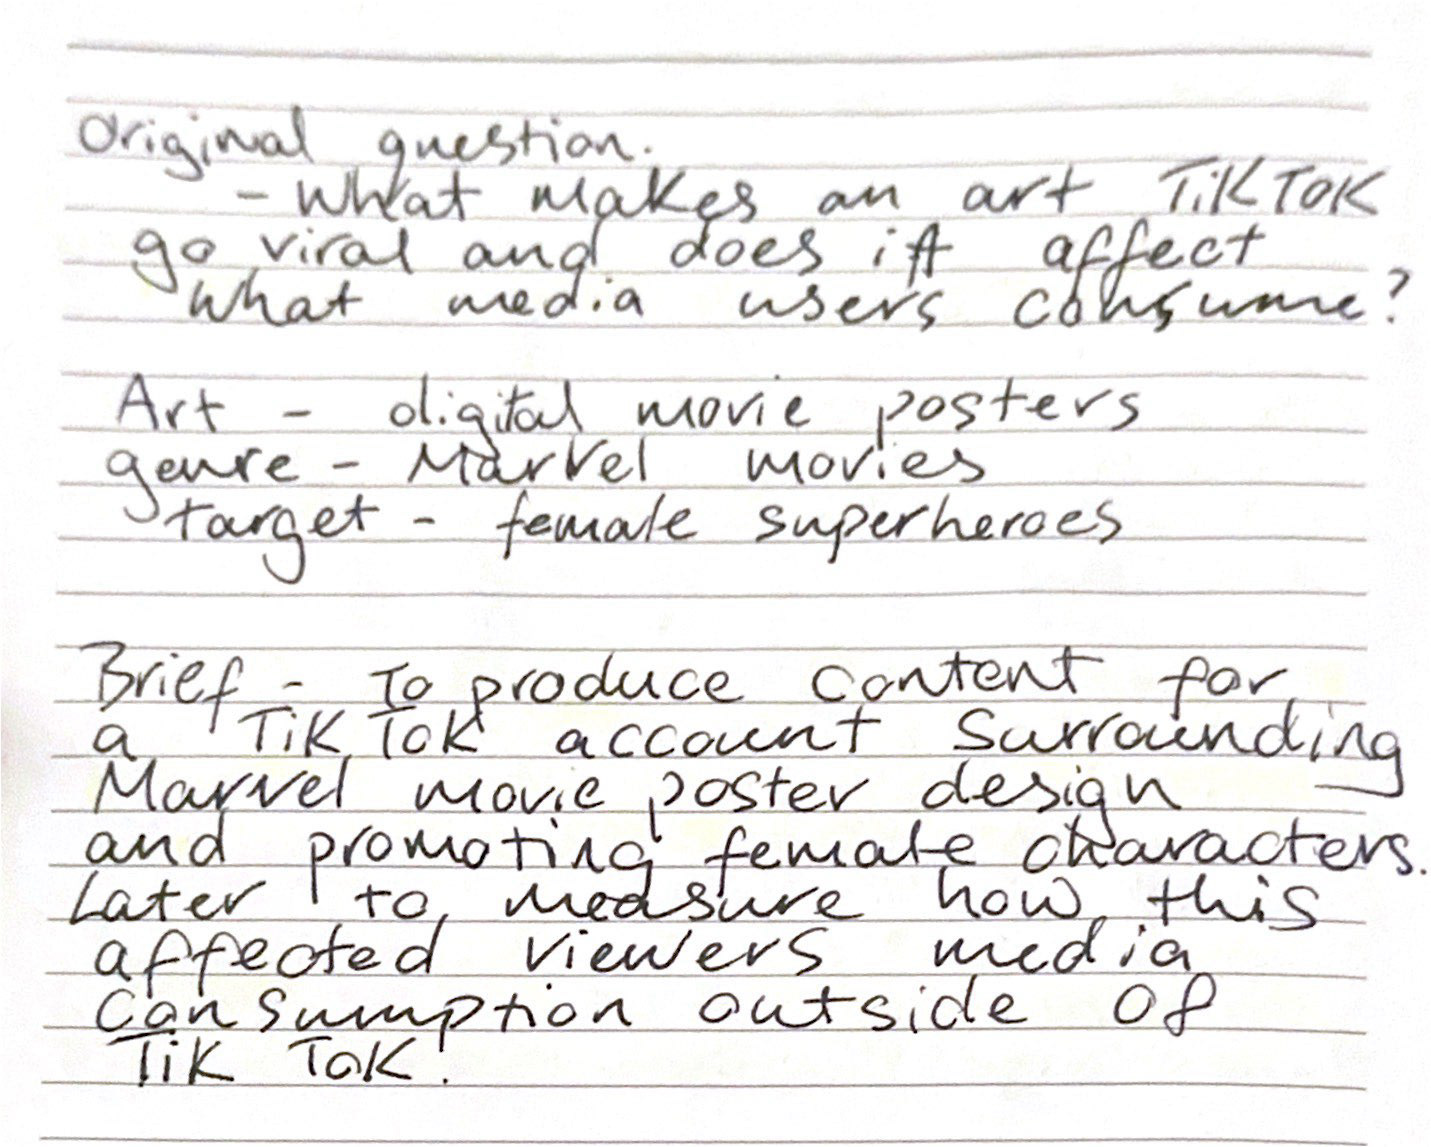 Original question.
- What makes an art TikTok
go viral and does it affect
what media users consume?
Art - digital movie posters
genre - Marvel movies
target - female superheroes
Brief - To produce content for
a TikTok account surrounding
Marvel movie poster design
and promoting female characters.
Later to measure how this
affected viewers media
consumption outside of
Tik Tok.